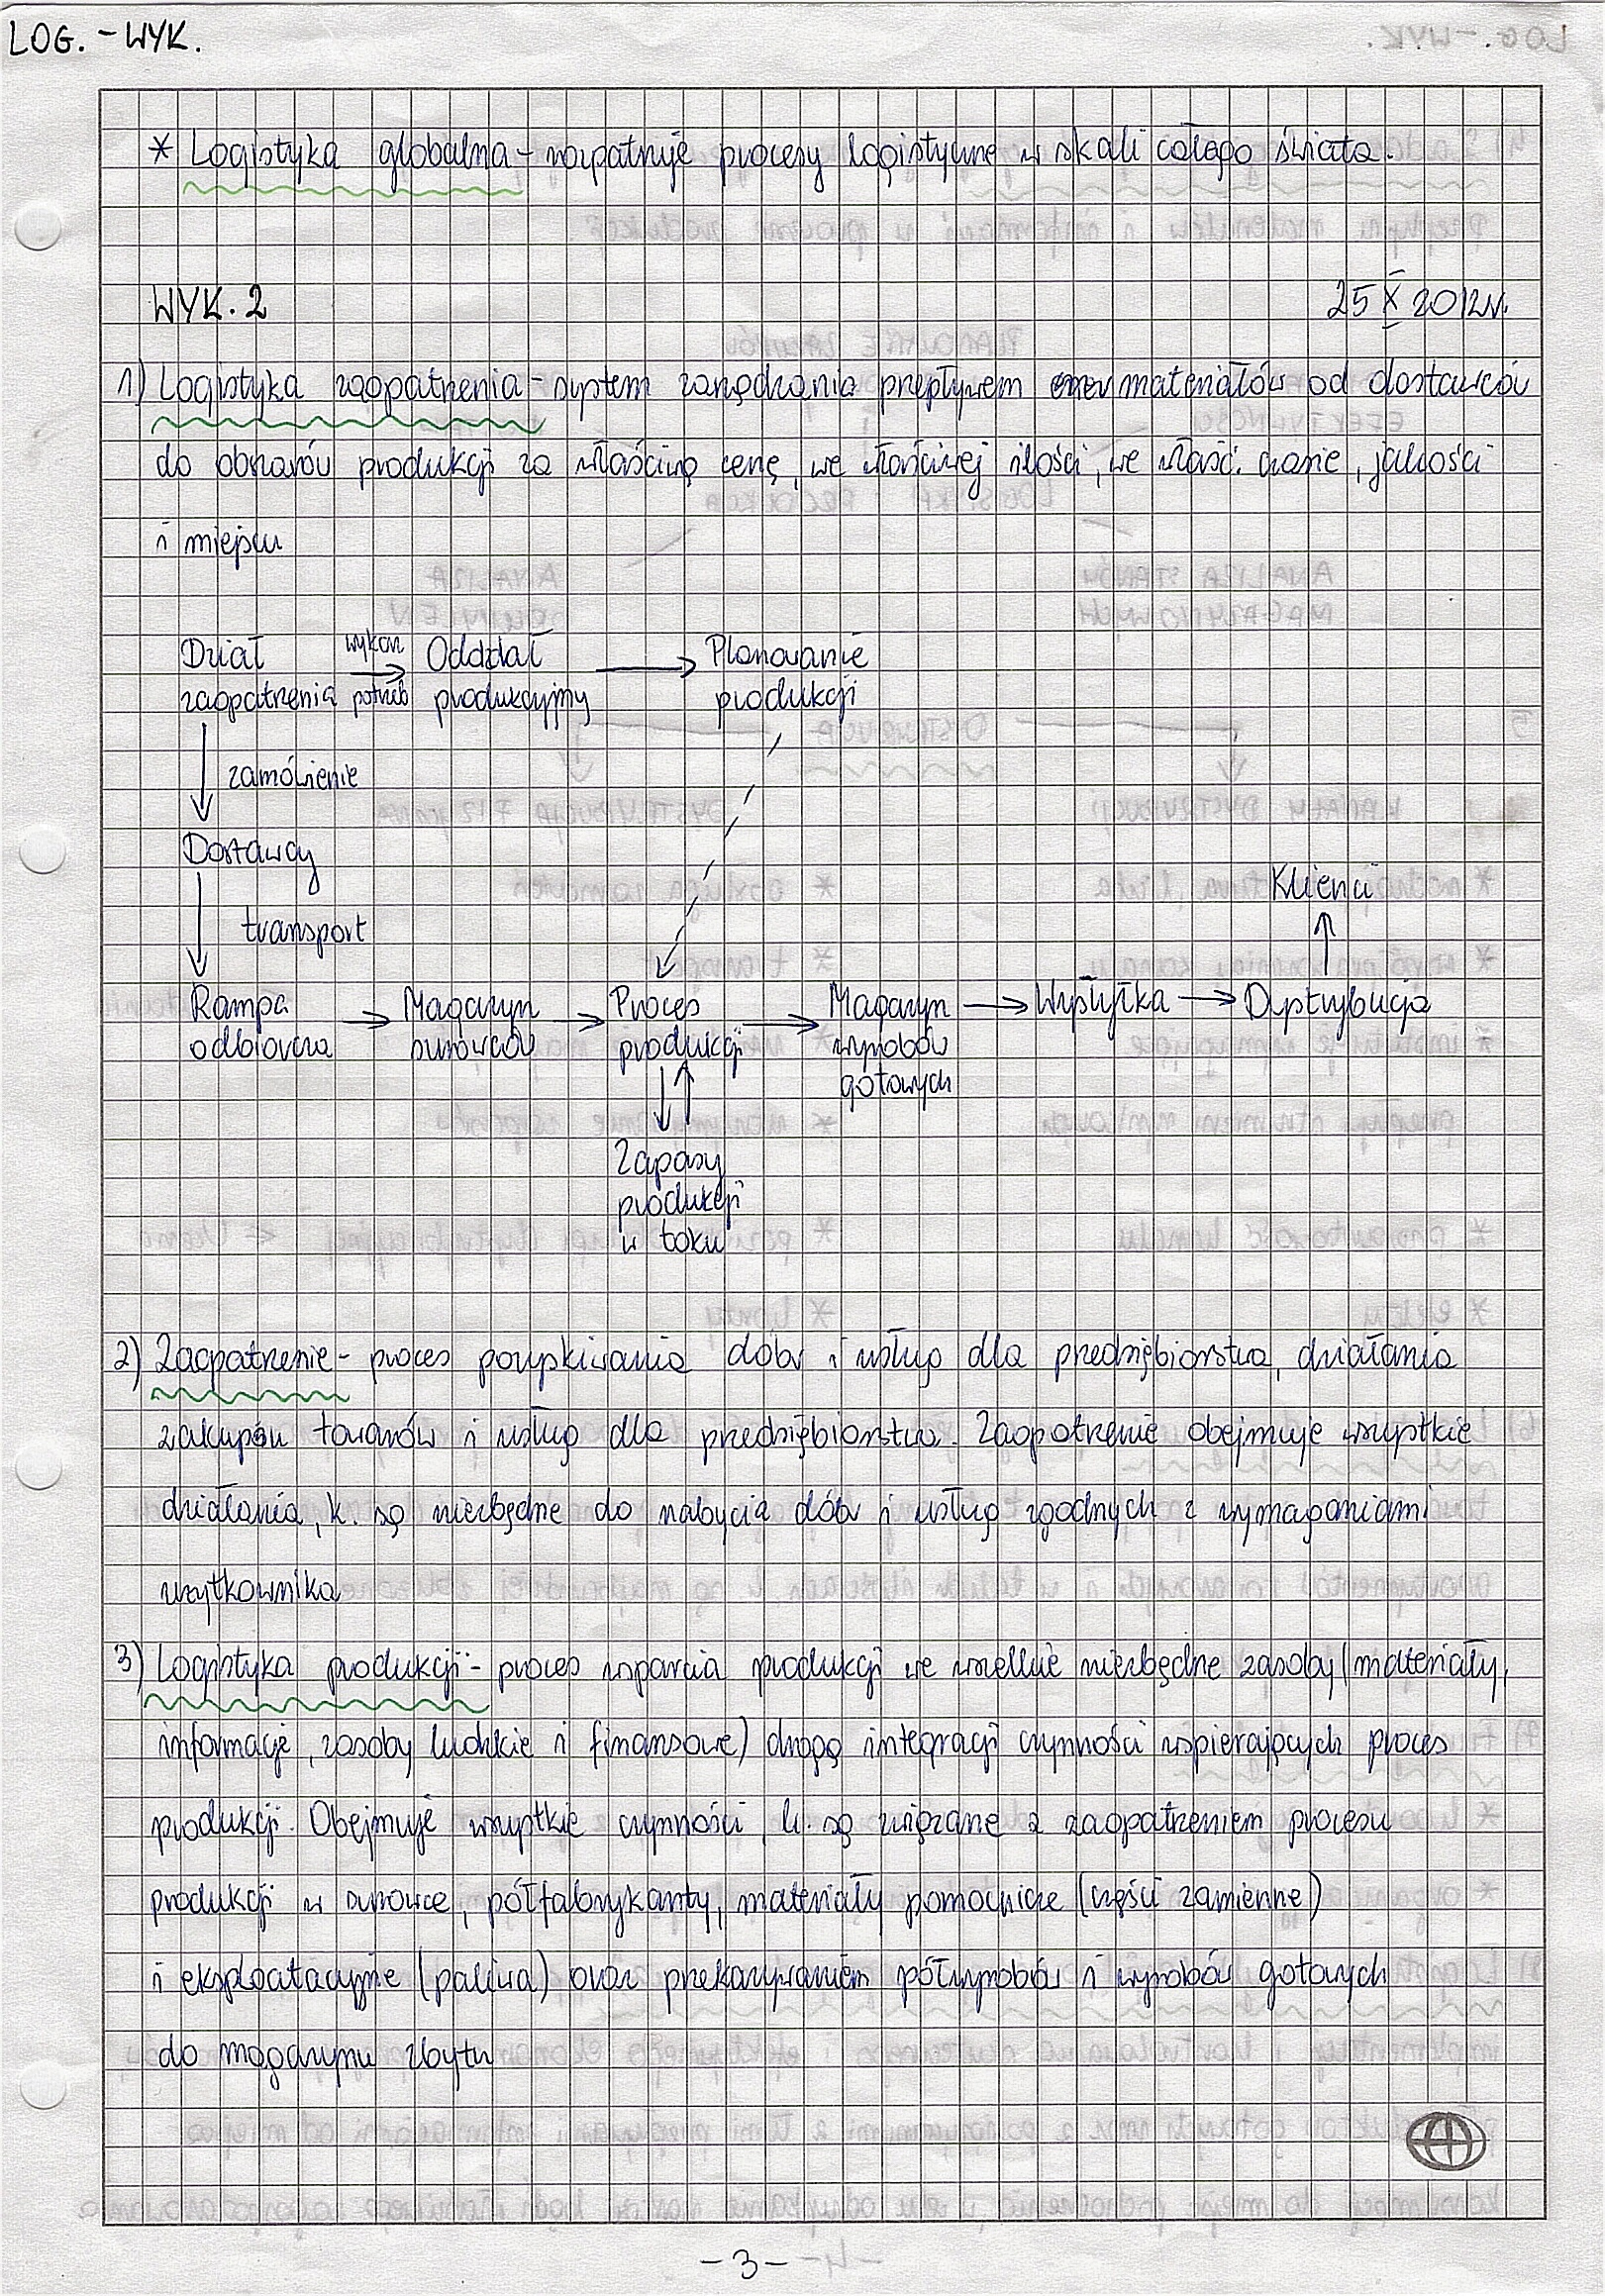 LOG. - WYK.
* Logistyka globalna - rozpatruje procesy logistyczne w skali całego świata.
WYK. 2 25 X 2012r.
1) Logistyka zaopatrzenia - system zarządzania przepływem materiałów od dostawców
do obszarów produkcji za właściwą cenę, we właściwej ilości, we właśc. czasie, jakości
i miejscu
Dział wykaz Oddział Planowanie
zaopatrzenia potrzeb produkcyjny produkcji
zamówienie
Dostawcy
Klienci
transport
Rampa Magazyn Proces Magazyn Wysyłka Dystrybucja
odbiorcza surowców produkcji wyrobów
gotowych
Zapasy
produkcji
w toku
2) Zaopatrzenie - proces pozyskiwania dóbr i usług dla przedsiębiorstwa, działania
zakupów towarów i usług dla przedsiębiorstwa. Zaopatrzenie obejmuje wszystkie
działania, k. są niezbędne do nabycia dóbr i usług zgodnych z wymaganiami
użytkownika
3) Logistyka produkcji - proces wsparcia produkcji we wszelkie niezbędne zasoby (materiały,
informacje, zasoby ludzkie i finansowe) drogą integracji czynności wspierających proces
produkcji. Obejmuje wszystkie czynności, k. są związane z zaopatrzeniem procesu
produkcji w surowce, półfabrykanty, materiały pomocnicze (części zamienne)
i eksploatacyjne (paliwa) oraz przekazywaniem półwyrobów i wyrobów gotowych
do magazynu zbytu
- 3 -